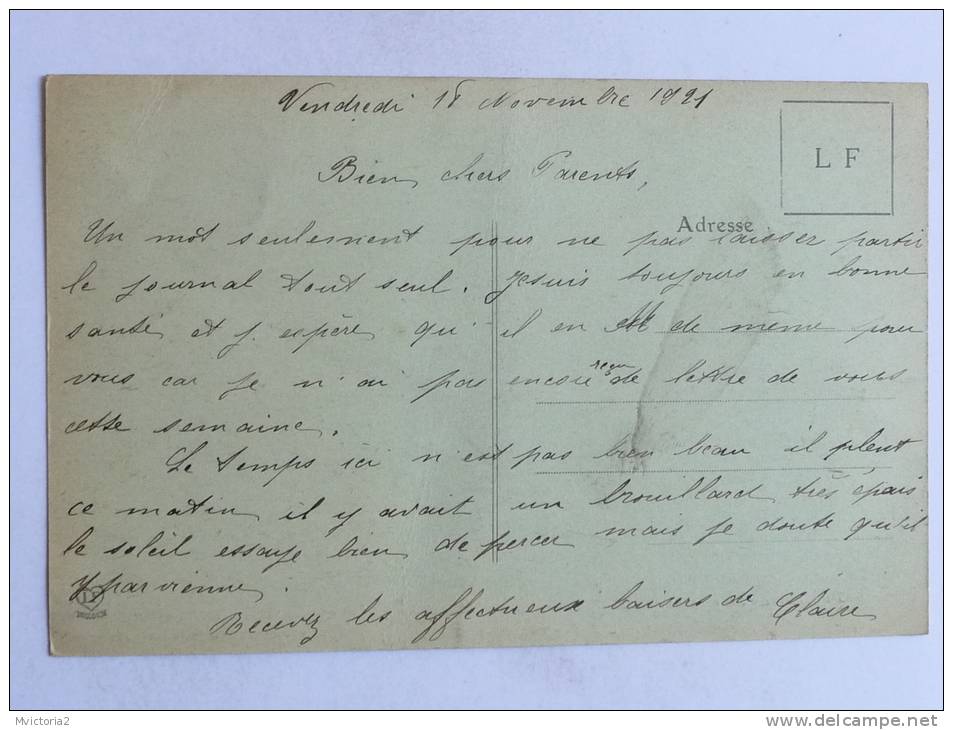 Vendredi 18 Novembre 1921
L F
Bien chers Parents,
Adresse
Un mot seulement pour ne pas laisser partir
le journal tout seul. Je suis toujours en bonne
santé et j espère qu' il en est de même pour
vous car je n' ai pas encore reçu de lettre de vous
cette semaine.
Le temps ici n'est pas bien beau il pleut
ce matin il y avait un brouillard très épais
le soleil essaye bien de percer mais je doute qu'il
y parvienne.
Recevez les affectueux baisers de Claire
Mvictoria2
www.delcampe.net